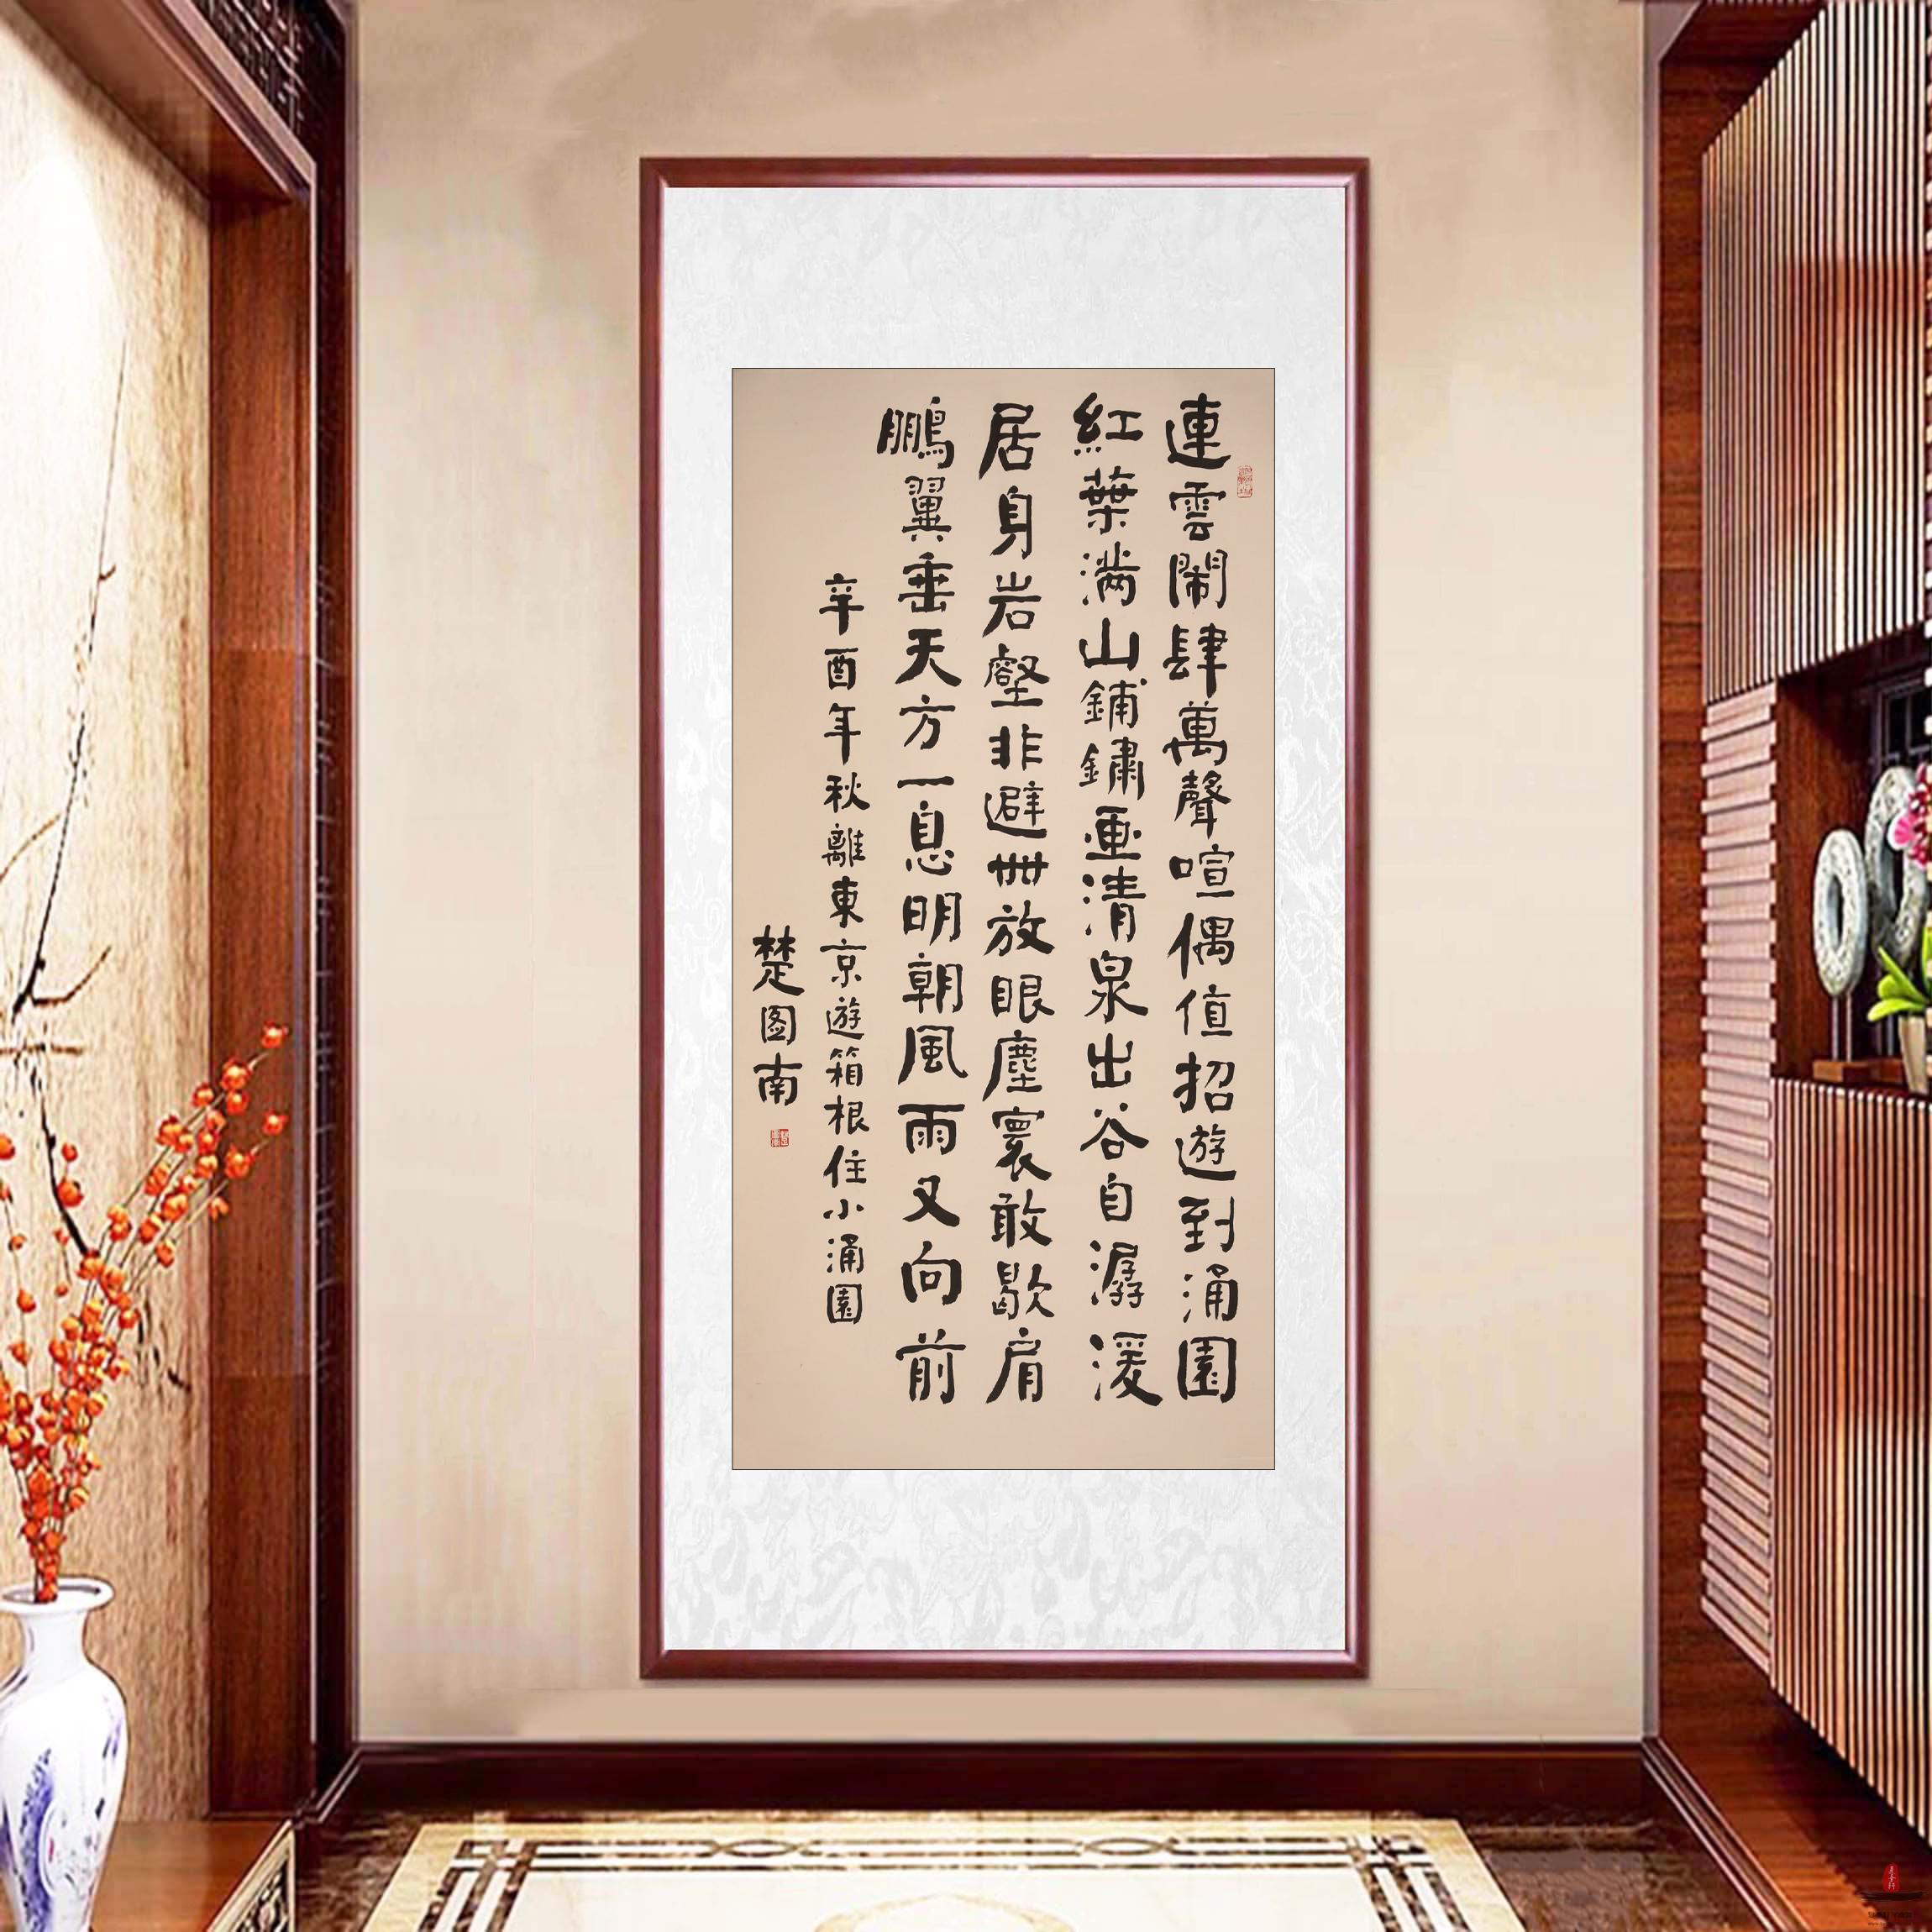 連雲鬧肆萬聲喧偶值招遊到涌園
紅葉满山鋪鏽畫清泉出谷自潺湲
居身岩壑非避世放眼塵寰敢歇肩
鵬翼垂天方一息明朝風雨又向前
辛酉年秋離東京遊箱根住小涌園
楚图南